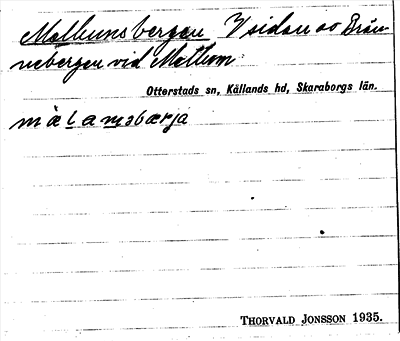 Malhumsbergen V sidan av Brän-
nebergen vid Malhem
Otterstads sn, Kållands hd, Skaraborgs län.
mälamsbærja
THORVALD JONSSON 1935.